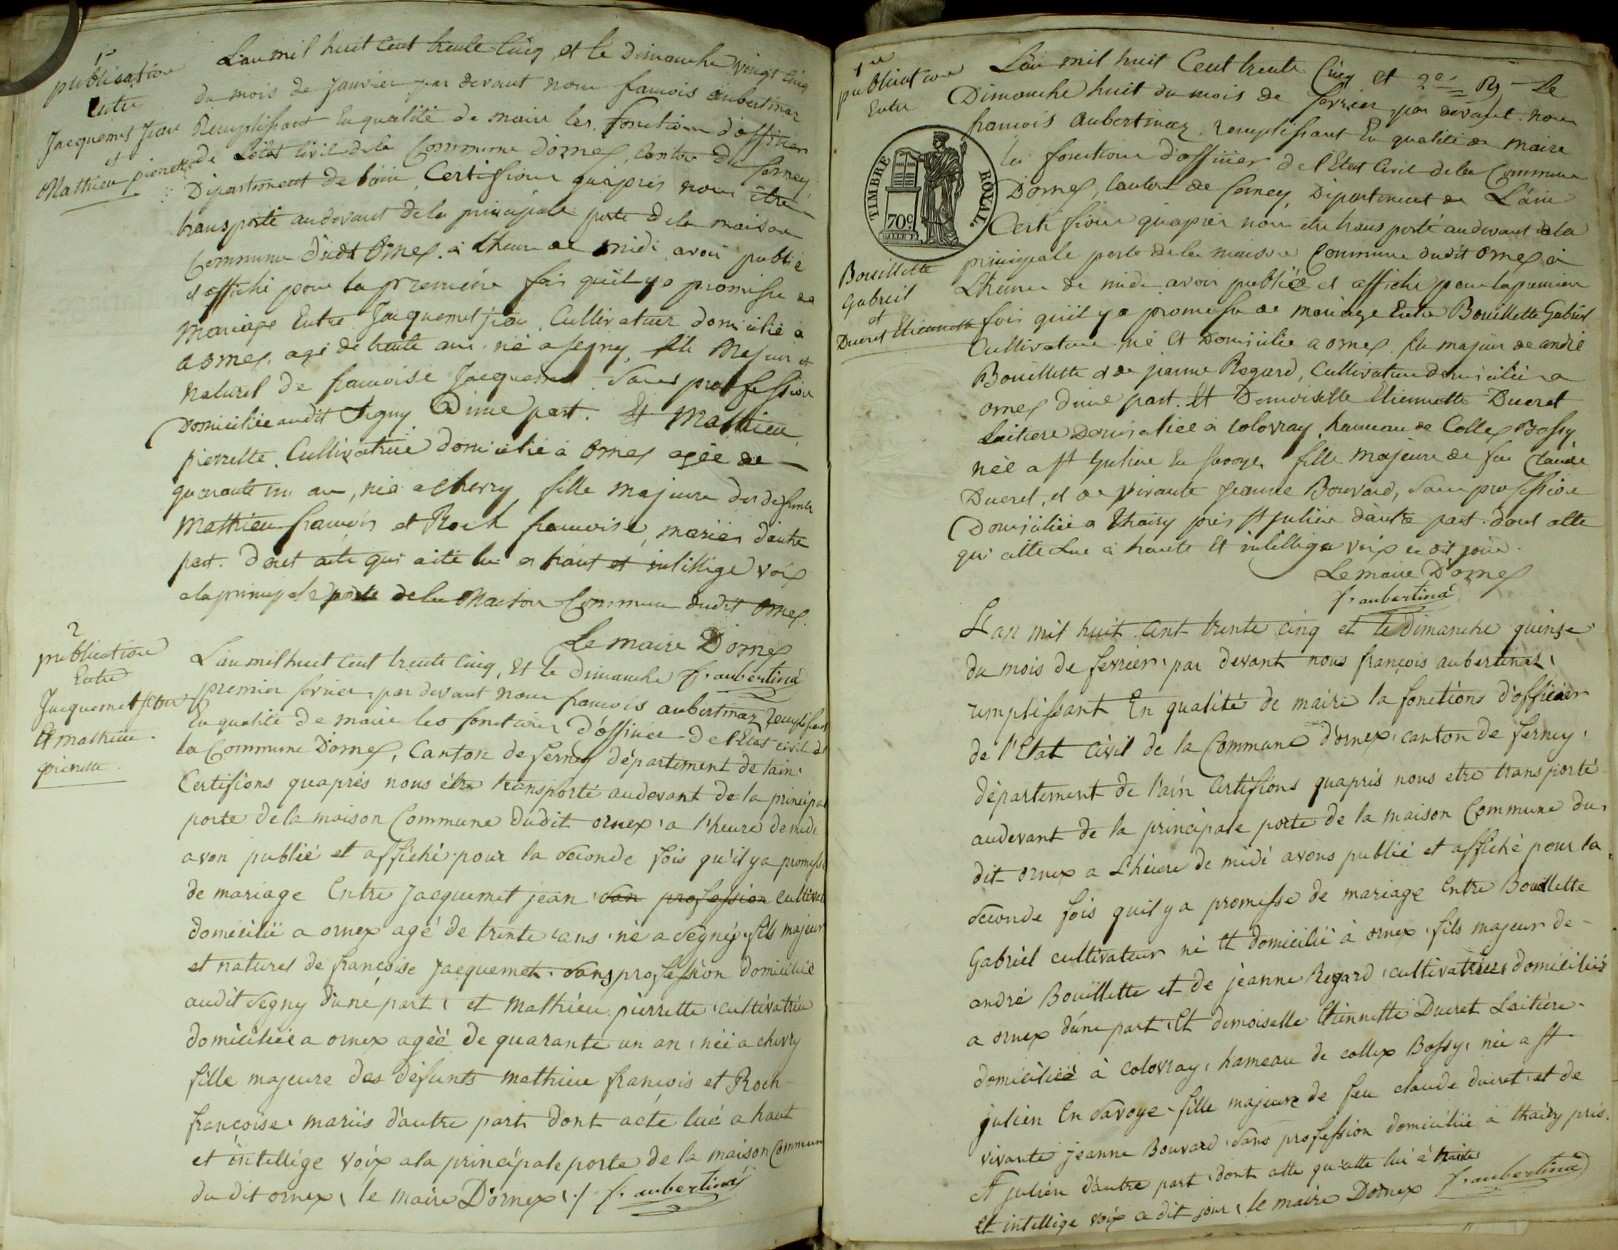 1re
publication
Entre
Jacquemet Jean
et
Mathieu pierrette
L'an mil huit Cent trente Cinq, et le Dimanche vingt cinq
du mois de Janvier par devant nous françois aubertinaz
Remplissant En qualité de maire les fonctions d'officier
de L'état Civil de la Commune d'ornex, Canton de ferney,
Département de l'ain, Certifions qu'après nous être
transporté au devant de la principale porte de la maison
Commune dudit Ornex. à l'heure de midi avoir publié
et affiché pour la première fois qu'il y a promesse de
Mariage Entre Jacquemet jean, Cultivateur domicilié à
ornex, agé de trente ans. né a Segny, fils Majeur et
Naturel de françoise Jacquemet. Sans profession
Domiciliée audit Segny D'une part. Et Mathieu,
pierrette, Cultivatrice domiciliée à Ornex agée de
quarante un an, née a chevry, fille Majeure des défunts
Mathieu françois et Roch françoise, mariés d'autre
part. Dont acte qui a été lu a haut et intellige voix
a la principale porte de la Maison Commune dudit Ornex.
Le maire D'ornex
f. aubertinaz
2
publication
Entre
Jacquemet Jean
Et mathieu
pierrette.
L'an mil huit Cent trente Cinq, et le dimanche
premier fevrier, par devant nous françois aubertinaz Remplissant
En qualité de maire les fonctions d'officier de l'Etat civil de
la Commune D'ornex, Canton de ferney département de lain,
Certifions qu'après nous être transporté au devant de la principale
porte de la maison Commune Dudit ornex, a l'heure de midi
avon publié et affiché pour la seconde fois qu'il y a promesse
de mariage Entre Jacquemet jean, san profession cultivateur
domicilié a ornex agé de trente ans, né a Segney, fils majeur
et naturel de françoise Jacquemet, sans profession domiciliée
audit Segny d'une part, et Mathieu pierrette, cultivatrice
domiciliée a ornex agéé de quarante un an, née a chevry
fille majeure des défunts mathieu françois et Roch
françoise, mariés d'autre part, dont acte lué a haut
et intellige voix a la principale porte de la maison commune
du dit ornex, le maire D'ornex ./. f. aubertinaz
1re
publication
Entre
TIMBRE ROYAL
70c
Bouillette
Gabriel
et
Ducret Etiennette
L'an mil huit Cent trente Cinq et Le
Dimanche huit du mois de fevrier, par devant nous
françois Aubertinaz, remplissant En qualité de Maire
les fonctions d'officier de l'Etat Civil de la Commune
D'ornex, Canton de ferney, Département de L'ain
Certifions qu'après nous être transporté au devant de la
principale porte de la maison Commune dudit ornex, à
L'heure de midi avoir publié et affiché pour la première
fois qu'il y a promesse de mariage Entre Bouillette Gabriel
Cultivateur né et domicilié a ornex, fils majeur de andré
Bouillette et de jeanne Regard, Cultivateurs domiciliés a
ornex d'une part. Et Demoiselle Etiennette Ducret
Laitiere domiciliée à Colovray, hameau de Collex Bossy
née a St Julien En Savoye, fille Majeure de feu Claude
Ducret, et de vivante Jeanne Bouvard, sans profession
Domiciliée a thairy près St Julien d'autre part. dont acte
qui a été lue à haute et intellige voix ce dit jour.
Le maire D'ornex
f. aubertinaz
L'an mil huit cent trente cinq et le Dimanche quinse
du mois de fevrier, par devant nous françois aubertinaz,
remplissant En qualité de maire la fonctions d'officier
de l'Etat Civil de la Commune d'ornex, canton de ferney,
département de l'ain Certifions qu'après nous etre transporté
au devant de la principale porte de la maison Commune du
dit ornex a L'heure de midi avons publié et affiché pour la
seconde fois qu'il y a promesse de mariage Entre Bouillette
Gabriel cultivateur né Et domicilié à ornex, fils majeur de
andré Bouillette et de jeanne Regard, cultivatrices domiciliés
a ornex d'une part, Et demoiselle Etiennette Ducret Laitière
domiciliée à colovray, hameau de collex Bossy, née a St
julien En Savoye, fille majeure de feu claude ducret, et de
vivante jeanne Bouvard, sans profession domiciliée à thairy près
St julien d'autre part, dont atte qu'atte lu à haute
et intellige voix ce dit jour, le maire D'ornex f. aubertinaz